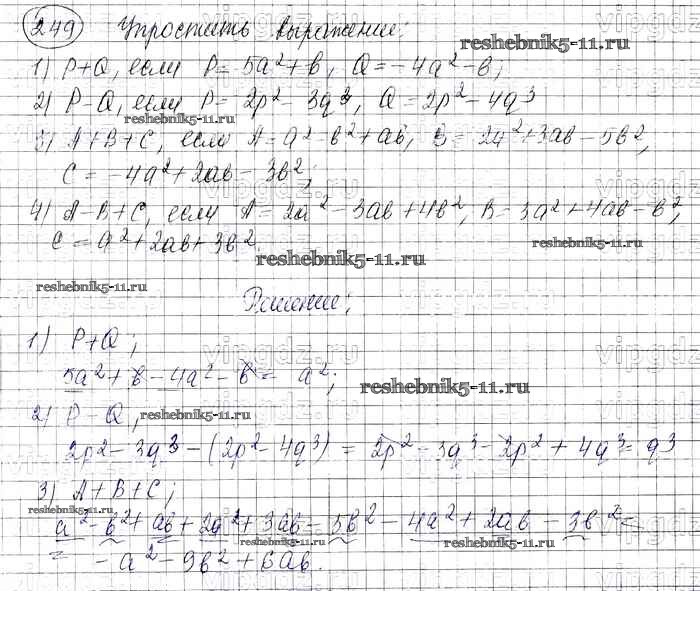 249 Упростить выражение:
reshebnik5-11.ru
1) P+Q, если P=5a²+b, Q=-4a²-b;
2) P-Q, если P=2p²-3q³, Q=2p²-4q³
reshebnik5-11.ru
3) A+B+C, если A=a²-b²+ab, B=2a²+3ab-5b²,
C=-4a²+2ab-3b²;
vipgdz.ru
4) A-B+C, если A=2a²-3ab+4b², B=3a²+4ab-b²,
C=a²+2ab+3b².
reshebnik5-11.ru
reshebnik5-11.ru
reshebnik5-11.ru
Решение:
1) P+Q;
vipgdz.ru
5a²+b-4a²-b=a²;
reshebnik5-11.ru
2) P-Q,
reshebnik5-11.ru
2p²-3q³-(2p²-4q³)=2p²-3q³-2p²+4q³=q³
3) A+B+C;
reshebnik5-11.ru
a²-b²+ab+2a²+3ab-5b²-4a²+2ab-3b²=
reshebnik5-11.ru
=-a²-9b²+6ab.